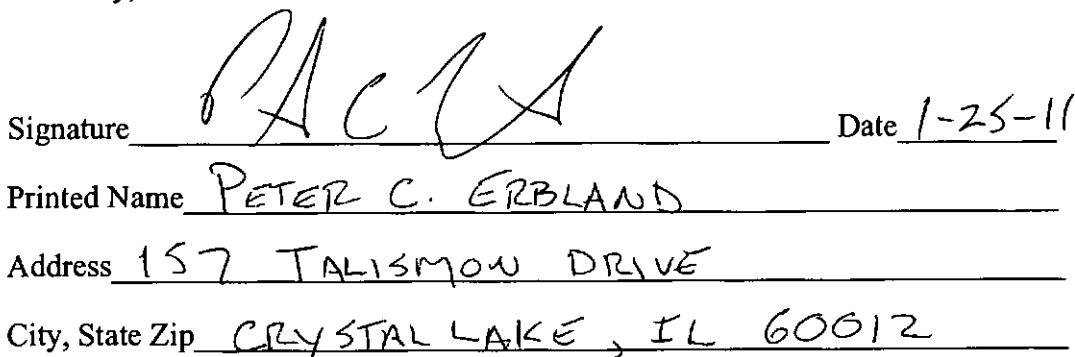 Signature Date 1-25-11
Printed Name PETER C. ERBLAND
Address 157 TALISMON DRIVE
City, State Zip CRYSTAL LAKE, IL 60012